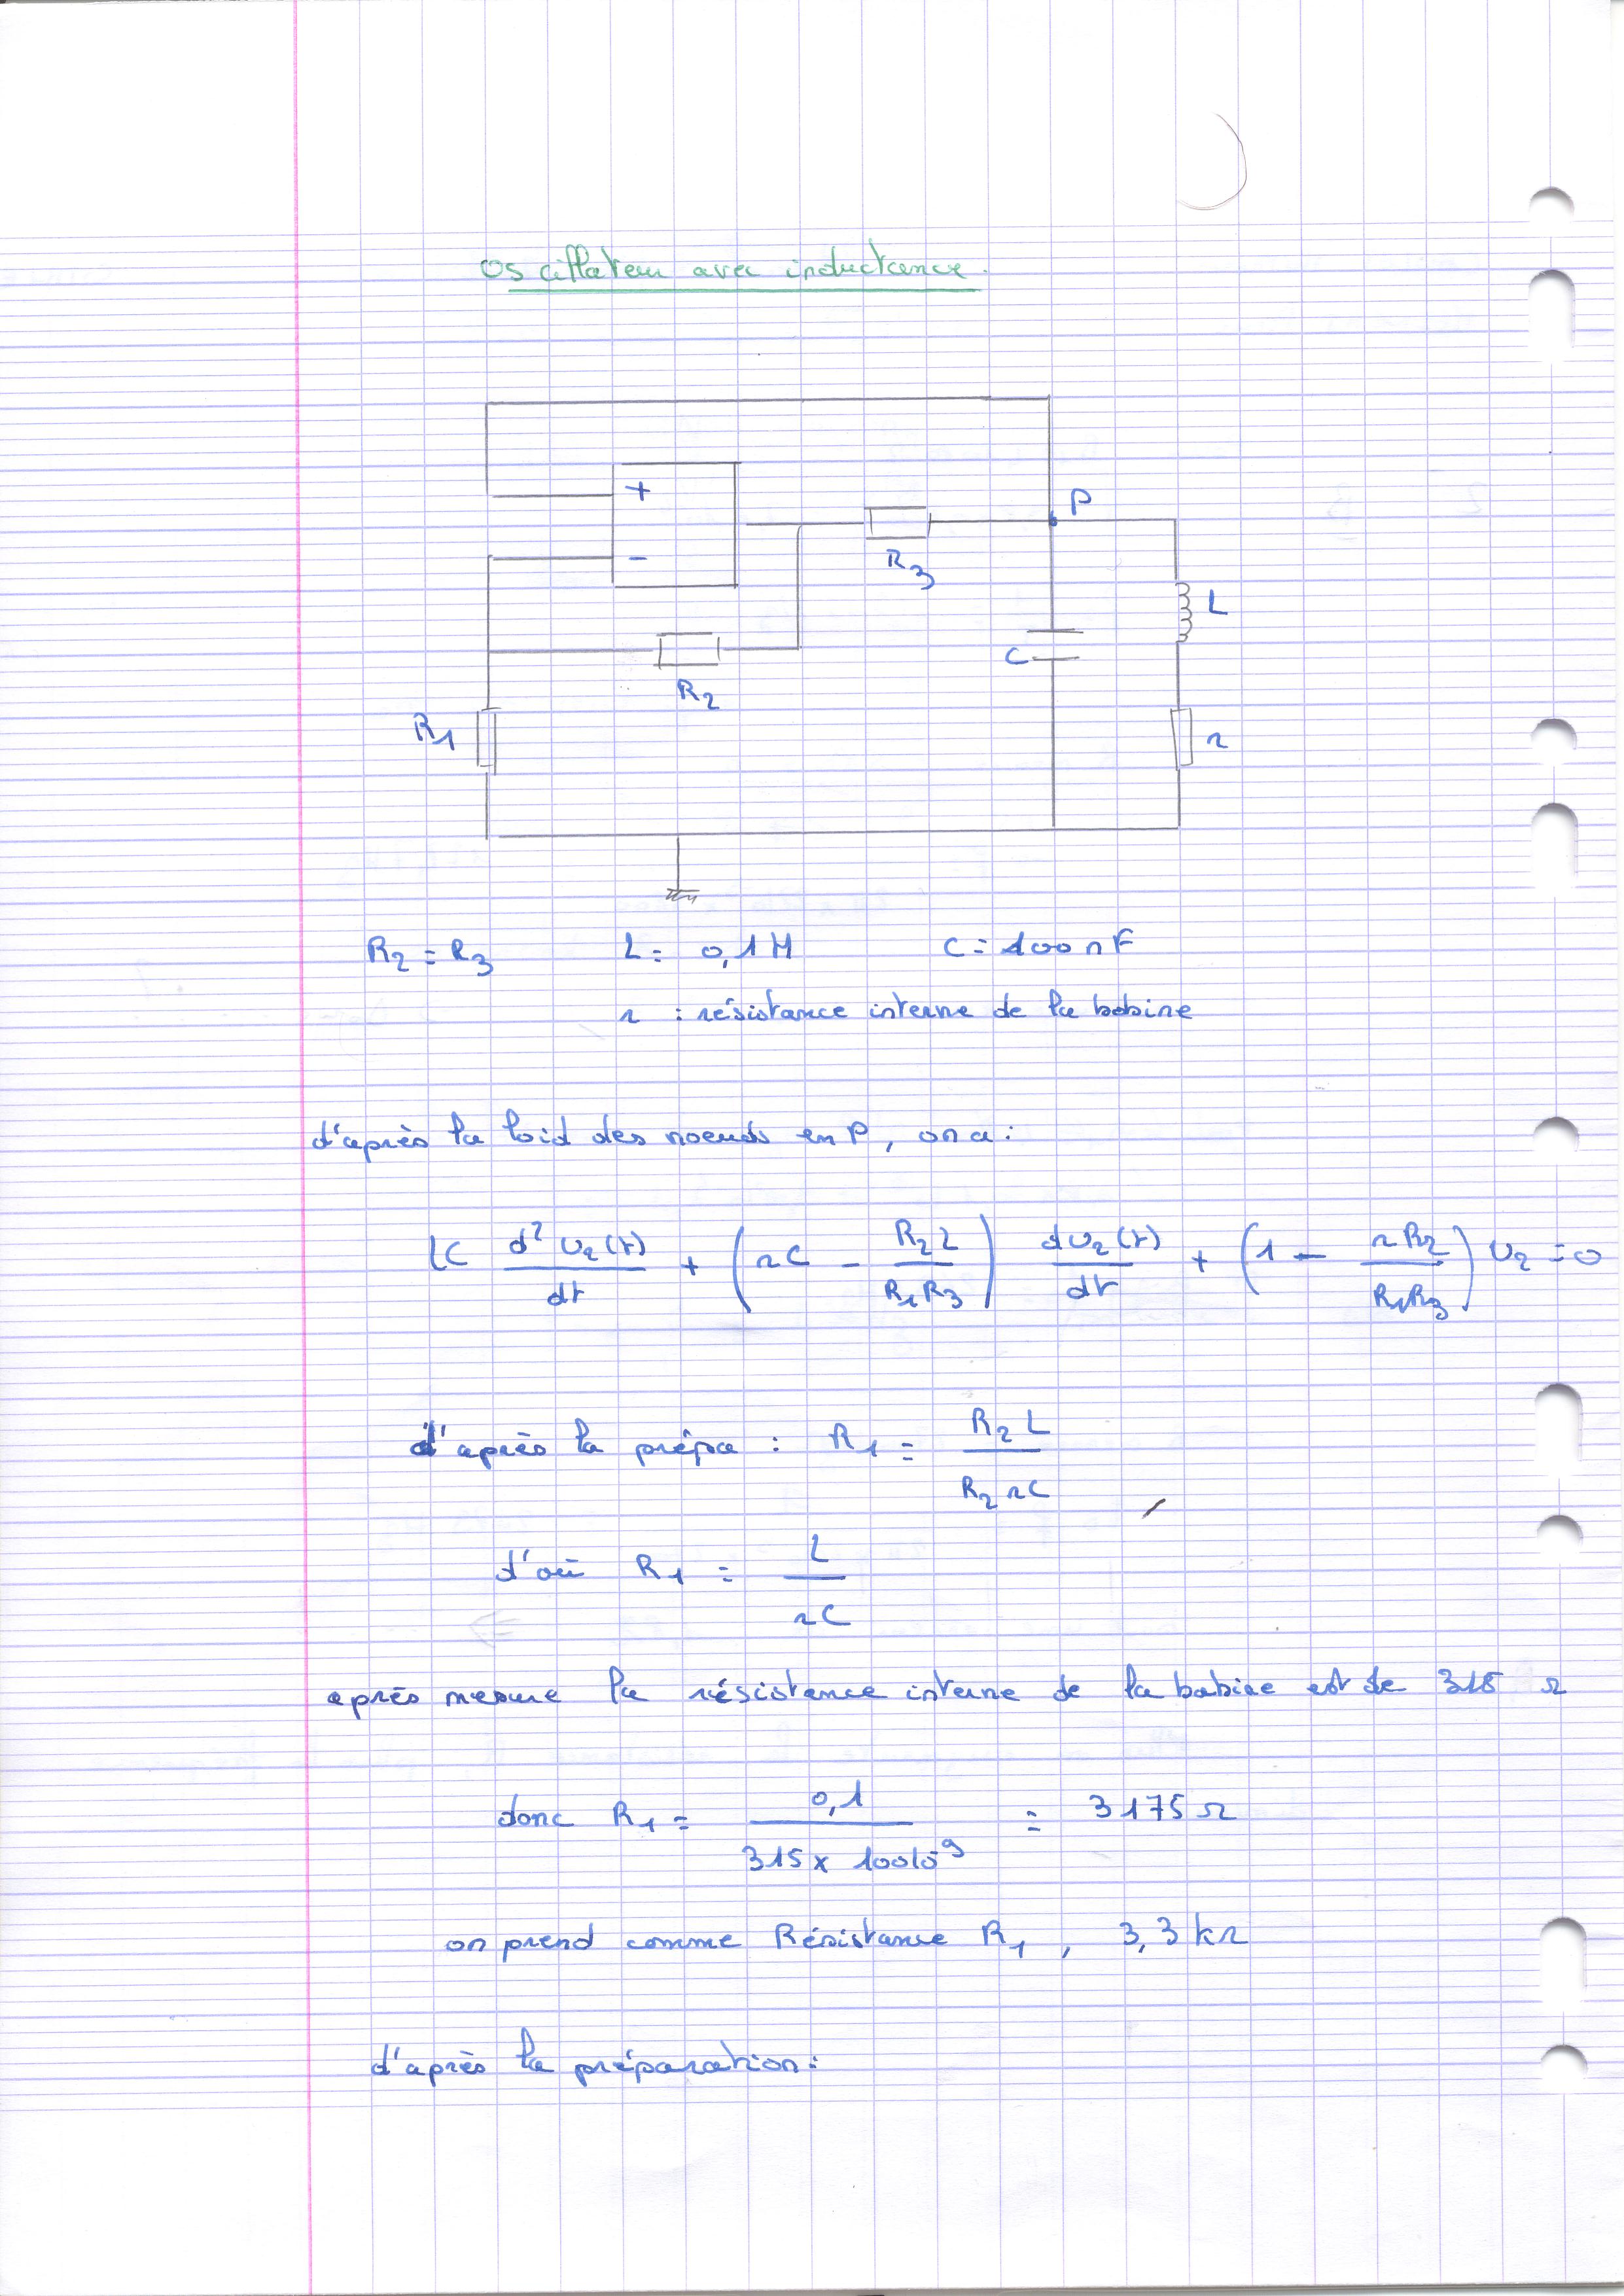 Oscillateur avec inductance.
+
P
-
R3
L
C
R2
R1
r
R2 = R3 L = 0,1 H C = 100 nF
r : résistance interne de la bobine
d'après la loid des noeuds en P, on a :
LC d² v2(t) / dt + (rC - R2 L / R1 R3) dv2(t) / dt + (1 - r R2 / R1 R3) v2 = 0
d'après la prépa : R1 = R2 L / R2 r C
d'où R1 = L / r C
après mesure la résistance interne de la bobine est de 315 Ω
donc R1 = 0,1 / 315 x 100 10^-9 = 3175 Ω
on prend comme Résistance R1, 3,3 kΩ
d'après la préparation :